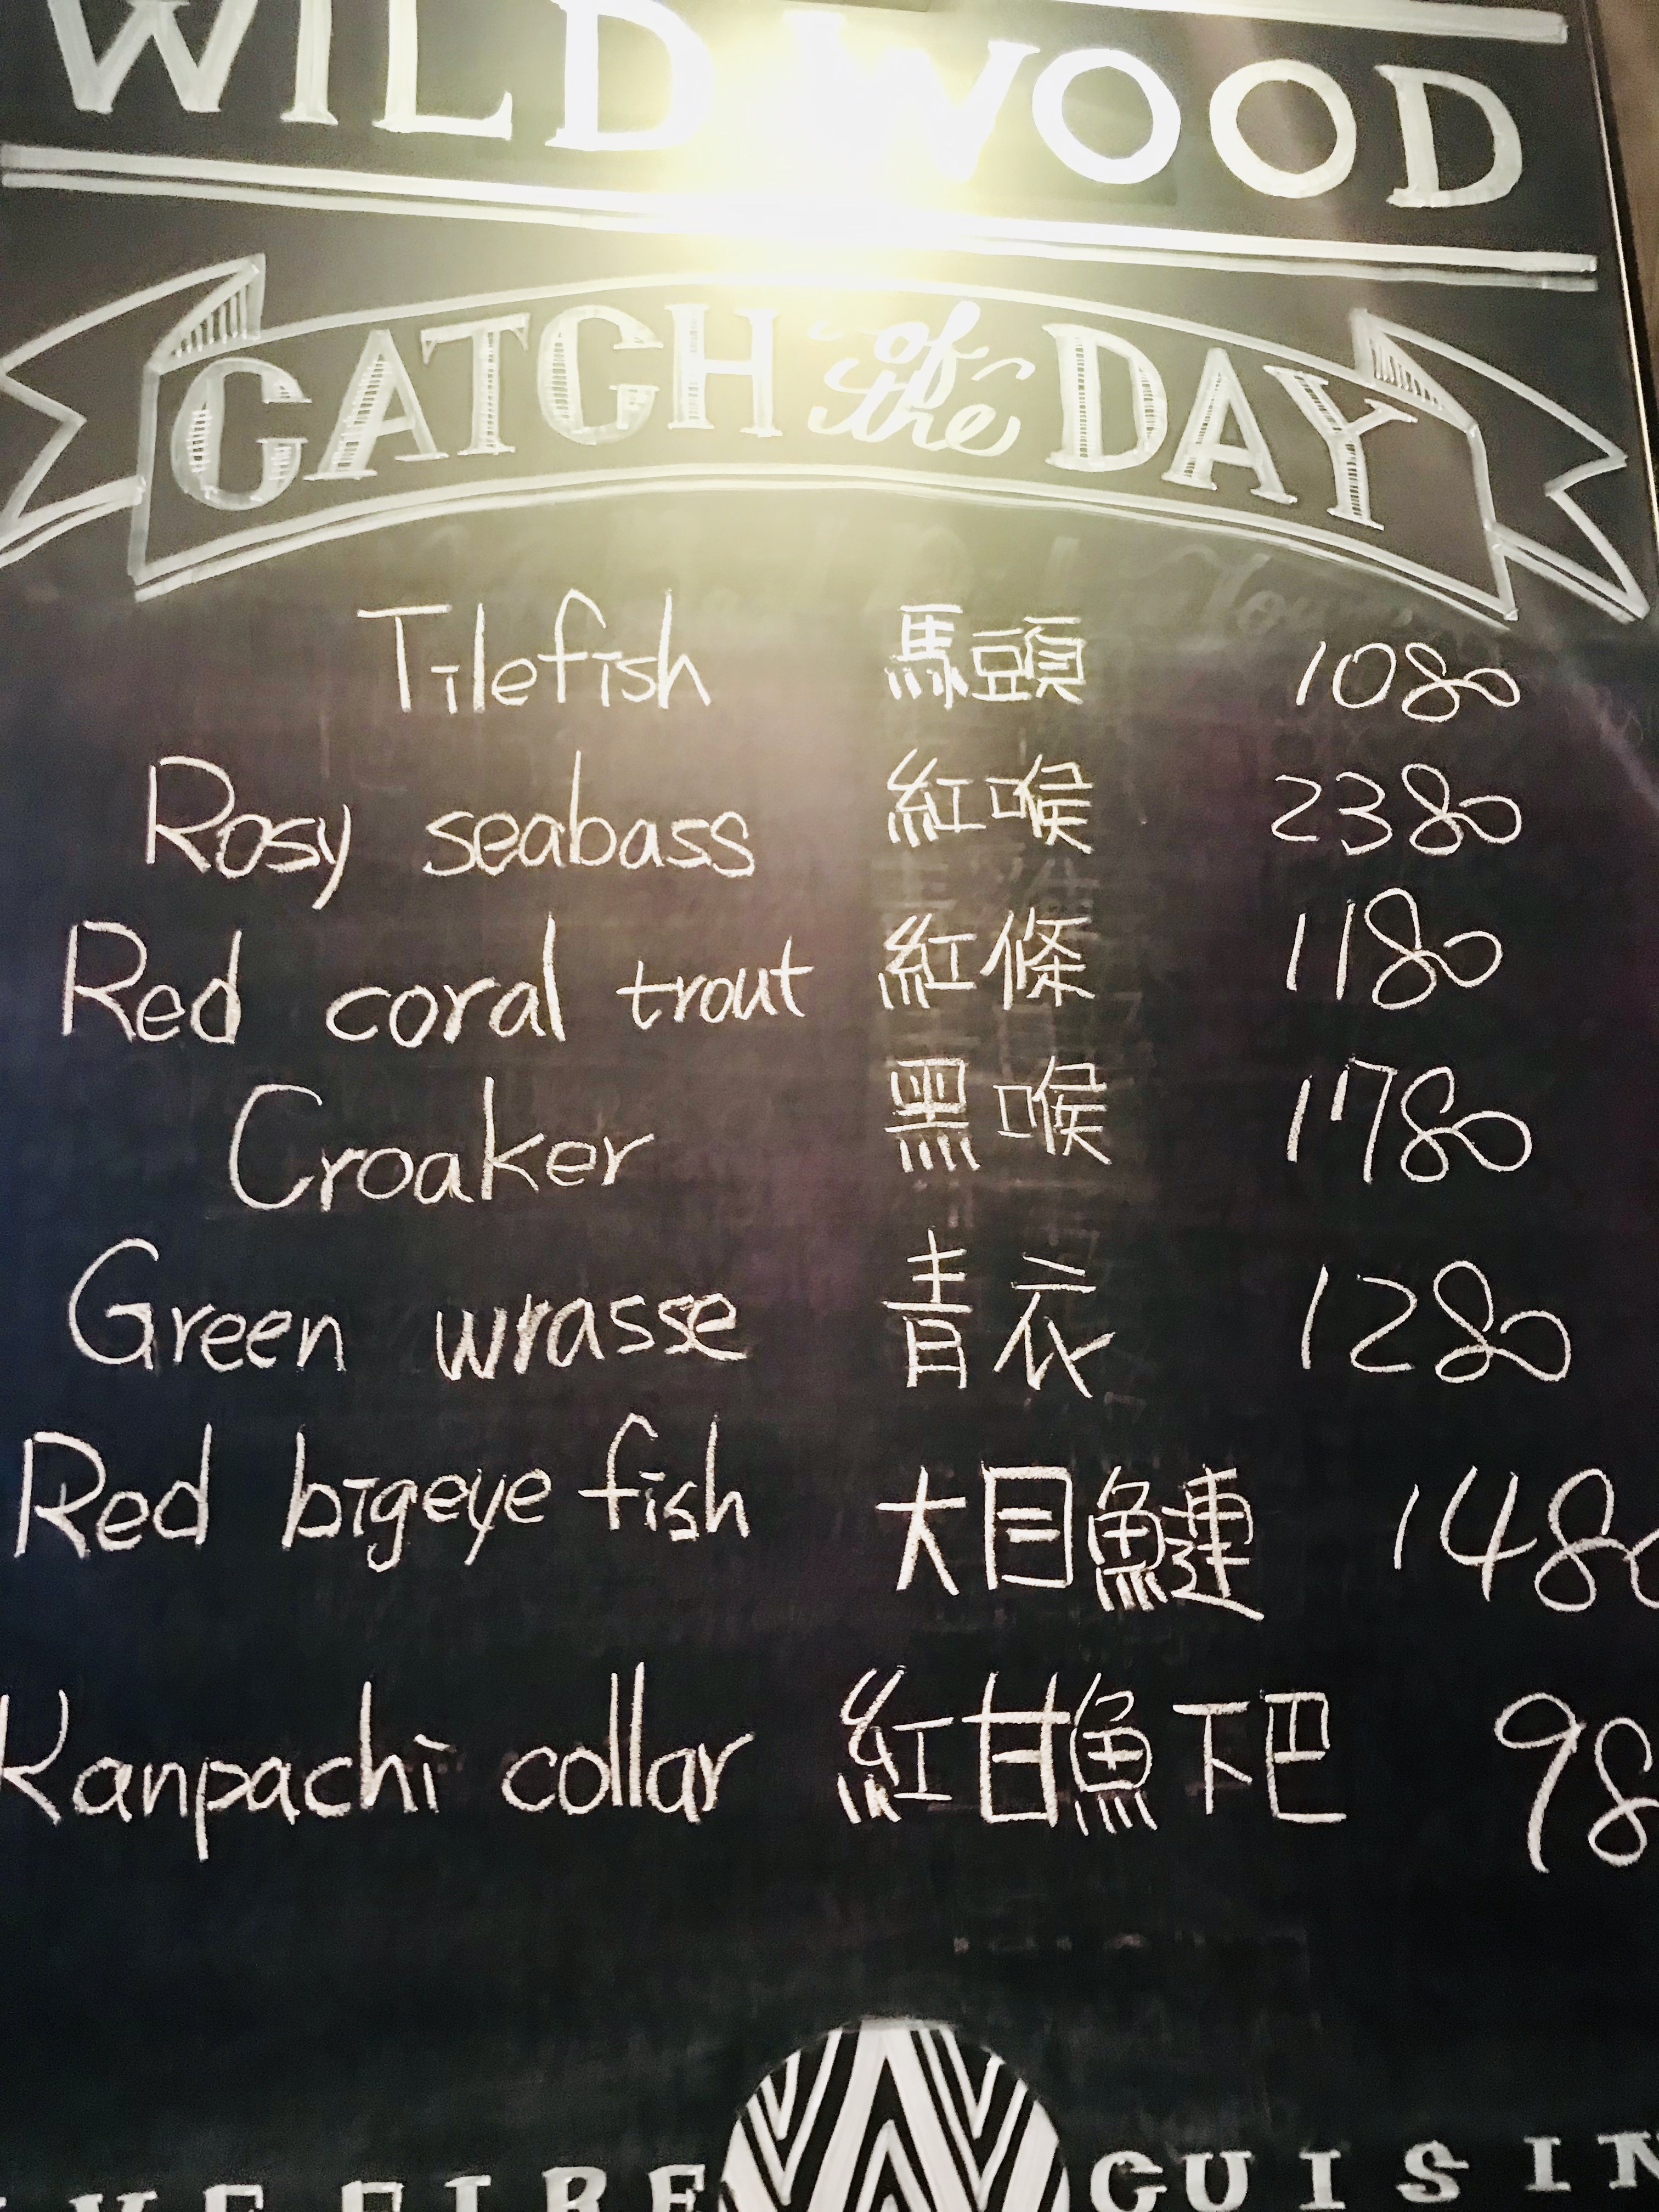 WILDWOOD
CATCH of the DAY
Tilefish 馬頭 1080
Rosy seabass 紅喉 2380
Red coral trout 紅條 1180
Croaker 黑喉 1780
Green wrasse 青衣 1280
Red bigeye fish 大目鰱 148
Kanpachi collar 紅甘魚下巴 98
FIRE CUISIN